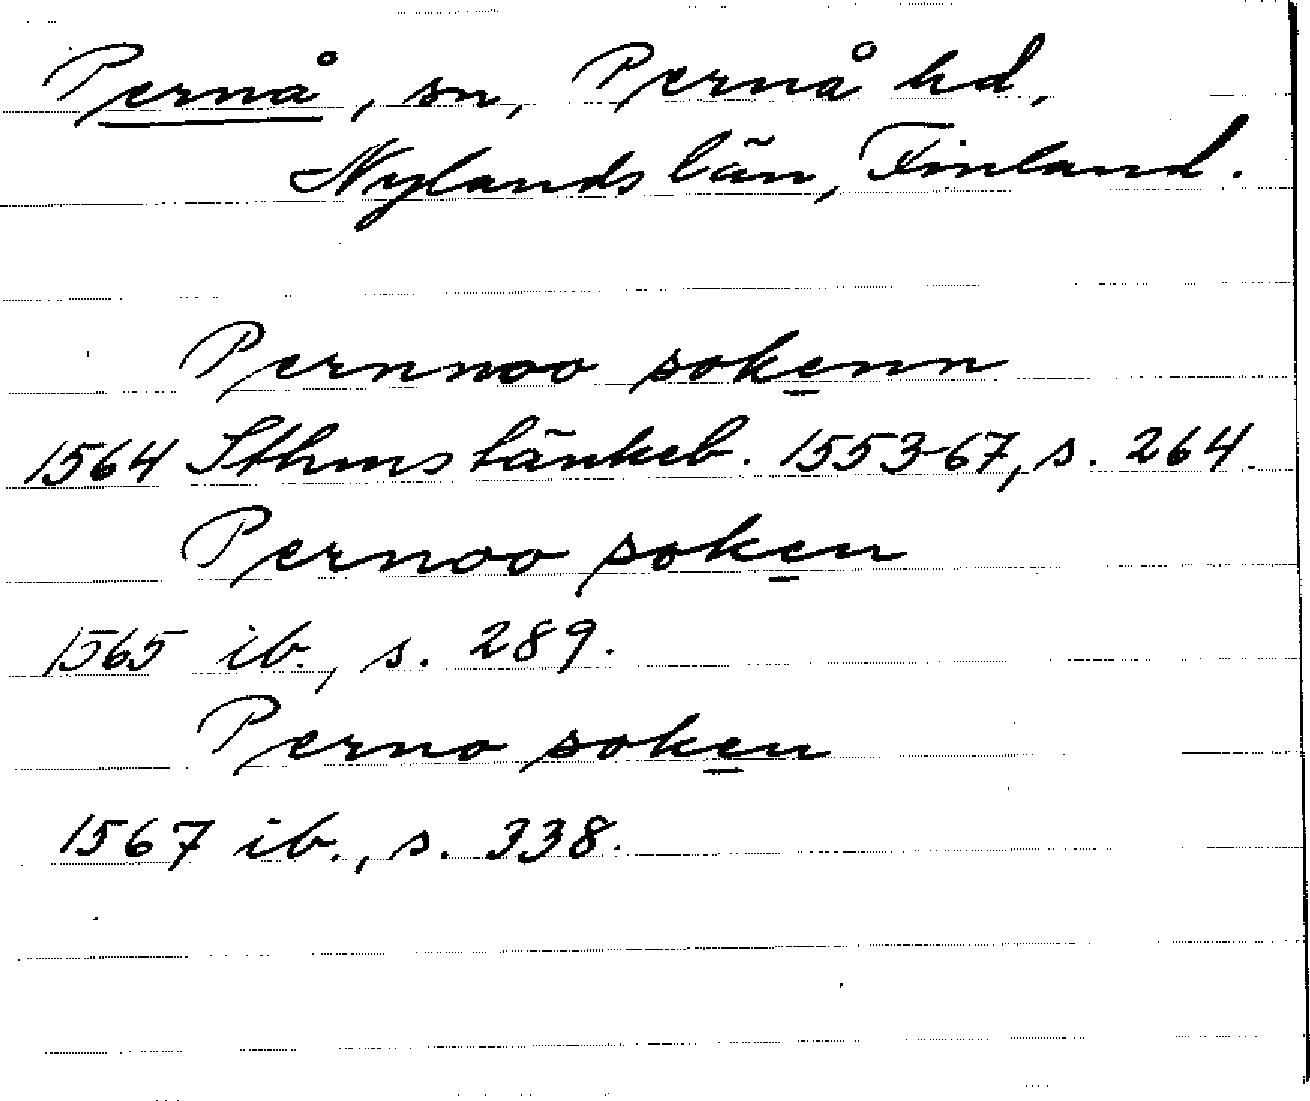 Pernå, sn, Pernå hd,
Nylands län, Finland.
Pernnoo sokenn
1564 Sthms tänkeb. 1553-67, s. 264.
Pernoo soken
1565 ib., s. 289.
Perno soken
1567 ib., s. 338.